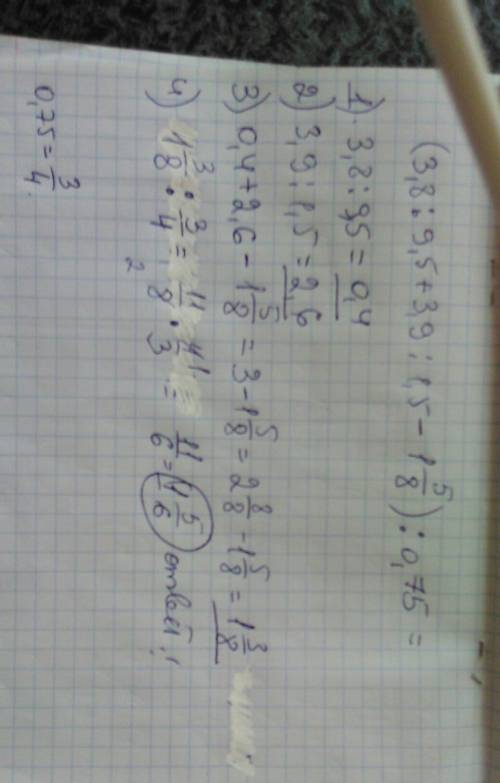 (3,8:9,5+3,9:1,5-1 5/8):0,75=
1) 3,8:9,5=0,4
2) 3,9:1,5=2,6
3) 0,4+2,6-1 5/8=3-1 5/8=2 8/8-1 5/8=1 3/8
4) 1 3/8:3/4=11/8·4/3=11/6=1 5/6 ответ!
2 1
0,75=3/4.